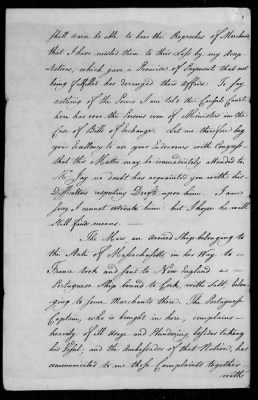 shall never be able to bear the Reproaches of Merchants
that I have misled them to this Loss by my Accep-
tations, which gave a Promise of Payment that not
being fulfilled has deranged their Affairs. To say
nothing of the Power I am told the Consul's Court
here has over the Persons even of Ministers in the
Case of Bills of Exchange. Let me therefore beg
your Excellency to use your Endeavours with Congress
that this Matter may be immediately attended to.
Mr. Jay no doubt has acquainted you with his
Difficulties respecting Drafts upon him. I am
sorry I cannot extricate him but I hope he will
still find means.
The Mars, an armed Ship belonging to
the State of Massachusetts in her Way to
France took and sent to New England a
Portuguese Ship bound to Cork, with Salt belong-
ing to some Merchants there. The Portuguese
Captain, who is brought in here, complains
heavily of ill Usage and Plundering, besides taking
his Vessel; and the Ambassador of that Nation, has
communicated to me those Complaints together
with